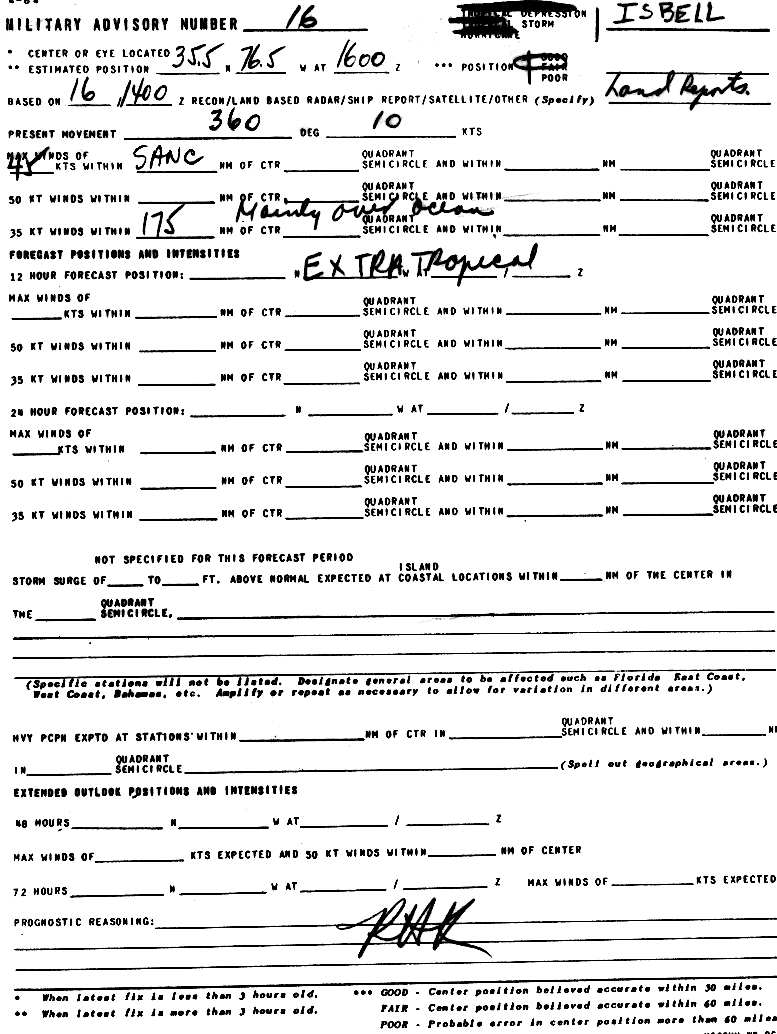 MILITARY ADVISORY NUMBER 16 TROPICAL DEPRESSION STORM HURRICANE ISBELL
* CENTER OR EYE LOCATED
** ESTIMATED POSITION 35.5 N 76.5 W AT 1600 Z *** POSITION GOOD FAIR POOR
BASED ON 16 /1400 Z RECON/LAND BASED RADAR/SHIP REPORT/SATELLITE/OTHER (Specify) Land Reports.
PRESENT MOVEMENT 360 DEG 10 KTS
MAX WINDS OF QUADRANT QUADRANT
45 KTS WITHIN SANC NM OF CTR SEMICIRCLE AND WITHIN NM SEMICIRCLE
QUADRANT QUADRANT
50 KT WINDS WITHIN NM OF CTR. SEMICIRCLE AND WITHIN NM SEMICIRCLE
Mainly over ocean
QUADRANT QUADRANT
35 KT WINDS WITHIN 175 NM OF CTR SEMICIRCLE AND WITHIN NM SEMICIRCLE
FORECAST POSITIONS AND INTENSITIES
12 HOUR FORECAST POSITION: N EXTRATropical W AT / Z
MAX WINDS OF QUADRANT QUADRANT
KTS WITHIN NM OF CTR SEMICIRCLE AND WITHIN NM SEMICIRCLE
QUADRANT QUADRANT
50 KT WINDS WITHIN NM OF CTR SEMICIRCLE AND WITHIN NM SEMICIRCLE
QUADRANT QUADRANT
35 KT WINDS WITHIN NM OF CTR SEMICIRCLE AND WITHIN NM SEMICIRCLE
24 HOUR FORECAST POSITION: N W AT / Z
MAX WINDS OF QUADRANT QUADRANT
KTS WITHIN NM OF CTR SEMICIRCLE AND WITHIN NM SEMICIRCLE
QUADRANT QUADRANT
50 KT WINDS WITHIN NM OF CTR SEMICIRCLE AND WITHIN NM SEMICIRCLE
QUADRANT QUADRANT
35 KT WINDS WITHIN NM OF CTR SEMICIRCLE AND WITHIN NM SEMICIRCLE
NOT SPECIFIED FOR THIS FORECAST PERIOD
ISLAND
STORM SURGE OF TO FT. ABOVE NORMAL EXPECTED AT COASTAL LOCATIONS WITHIN NM OF THE CENTER IN
QUADRANT
THE SEMICIRCLE,
(Specific stations will not be listed. Designate general areas to be affected such as Florida East Coast,
West Coast, Bahamas, etc. Amplify or repeat as necessary to allow for variation in different areas.)
QUADRANT
HVY PCPN EXPTD AT STATIONS WITHIN NM OF CTR IN SEMICIRCLE AND WITHIN
QUADRANT
IN SEMICIRCLE (Spell out geographical areas.)
EXTENDED OUTLOOK POSITIONS AND INTENSITIES
48 HOURS N W AT / Z
MAX WINDS OF KTS EXPECTED AND 50 KT WINDS WITHIN NM OF CENTER
72 HOURS N W AT / Z MAX WINDS OF KTS EXPECTED
PROGNOSTIC REASONING:
* When latest fix is less than 3 hours old. *** GOOD - Center position believed accurate within 30 miles.
** When latest fix is more than 3 hours old. FAIR - Center position believed accurate within 60 miles.
POOR - Probable error in center position more than 60 miles